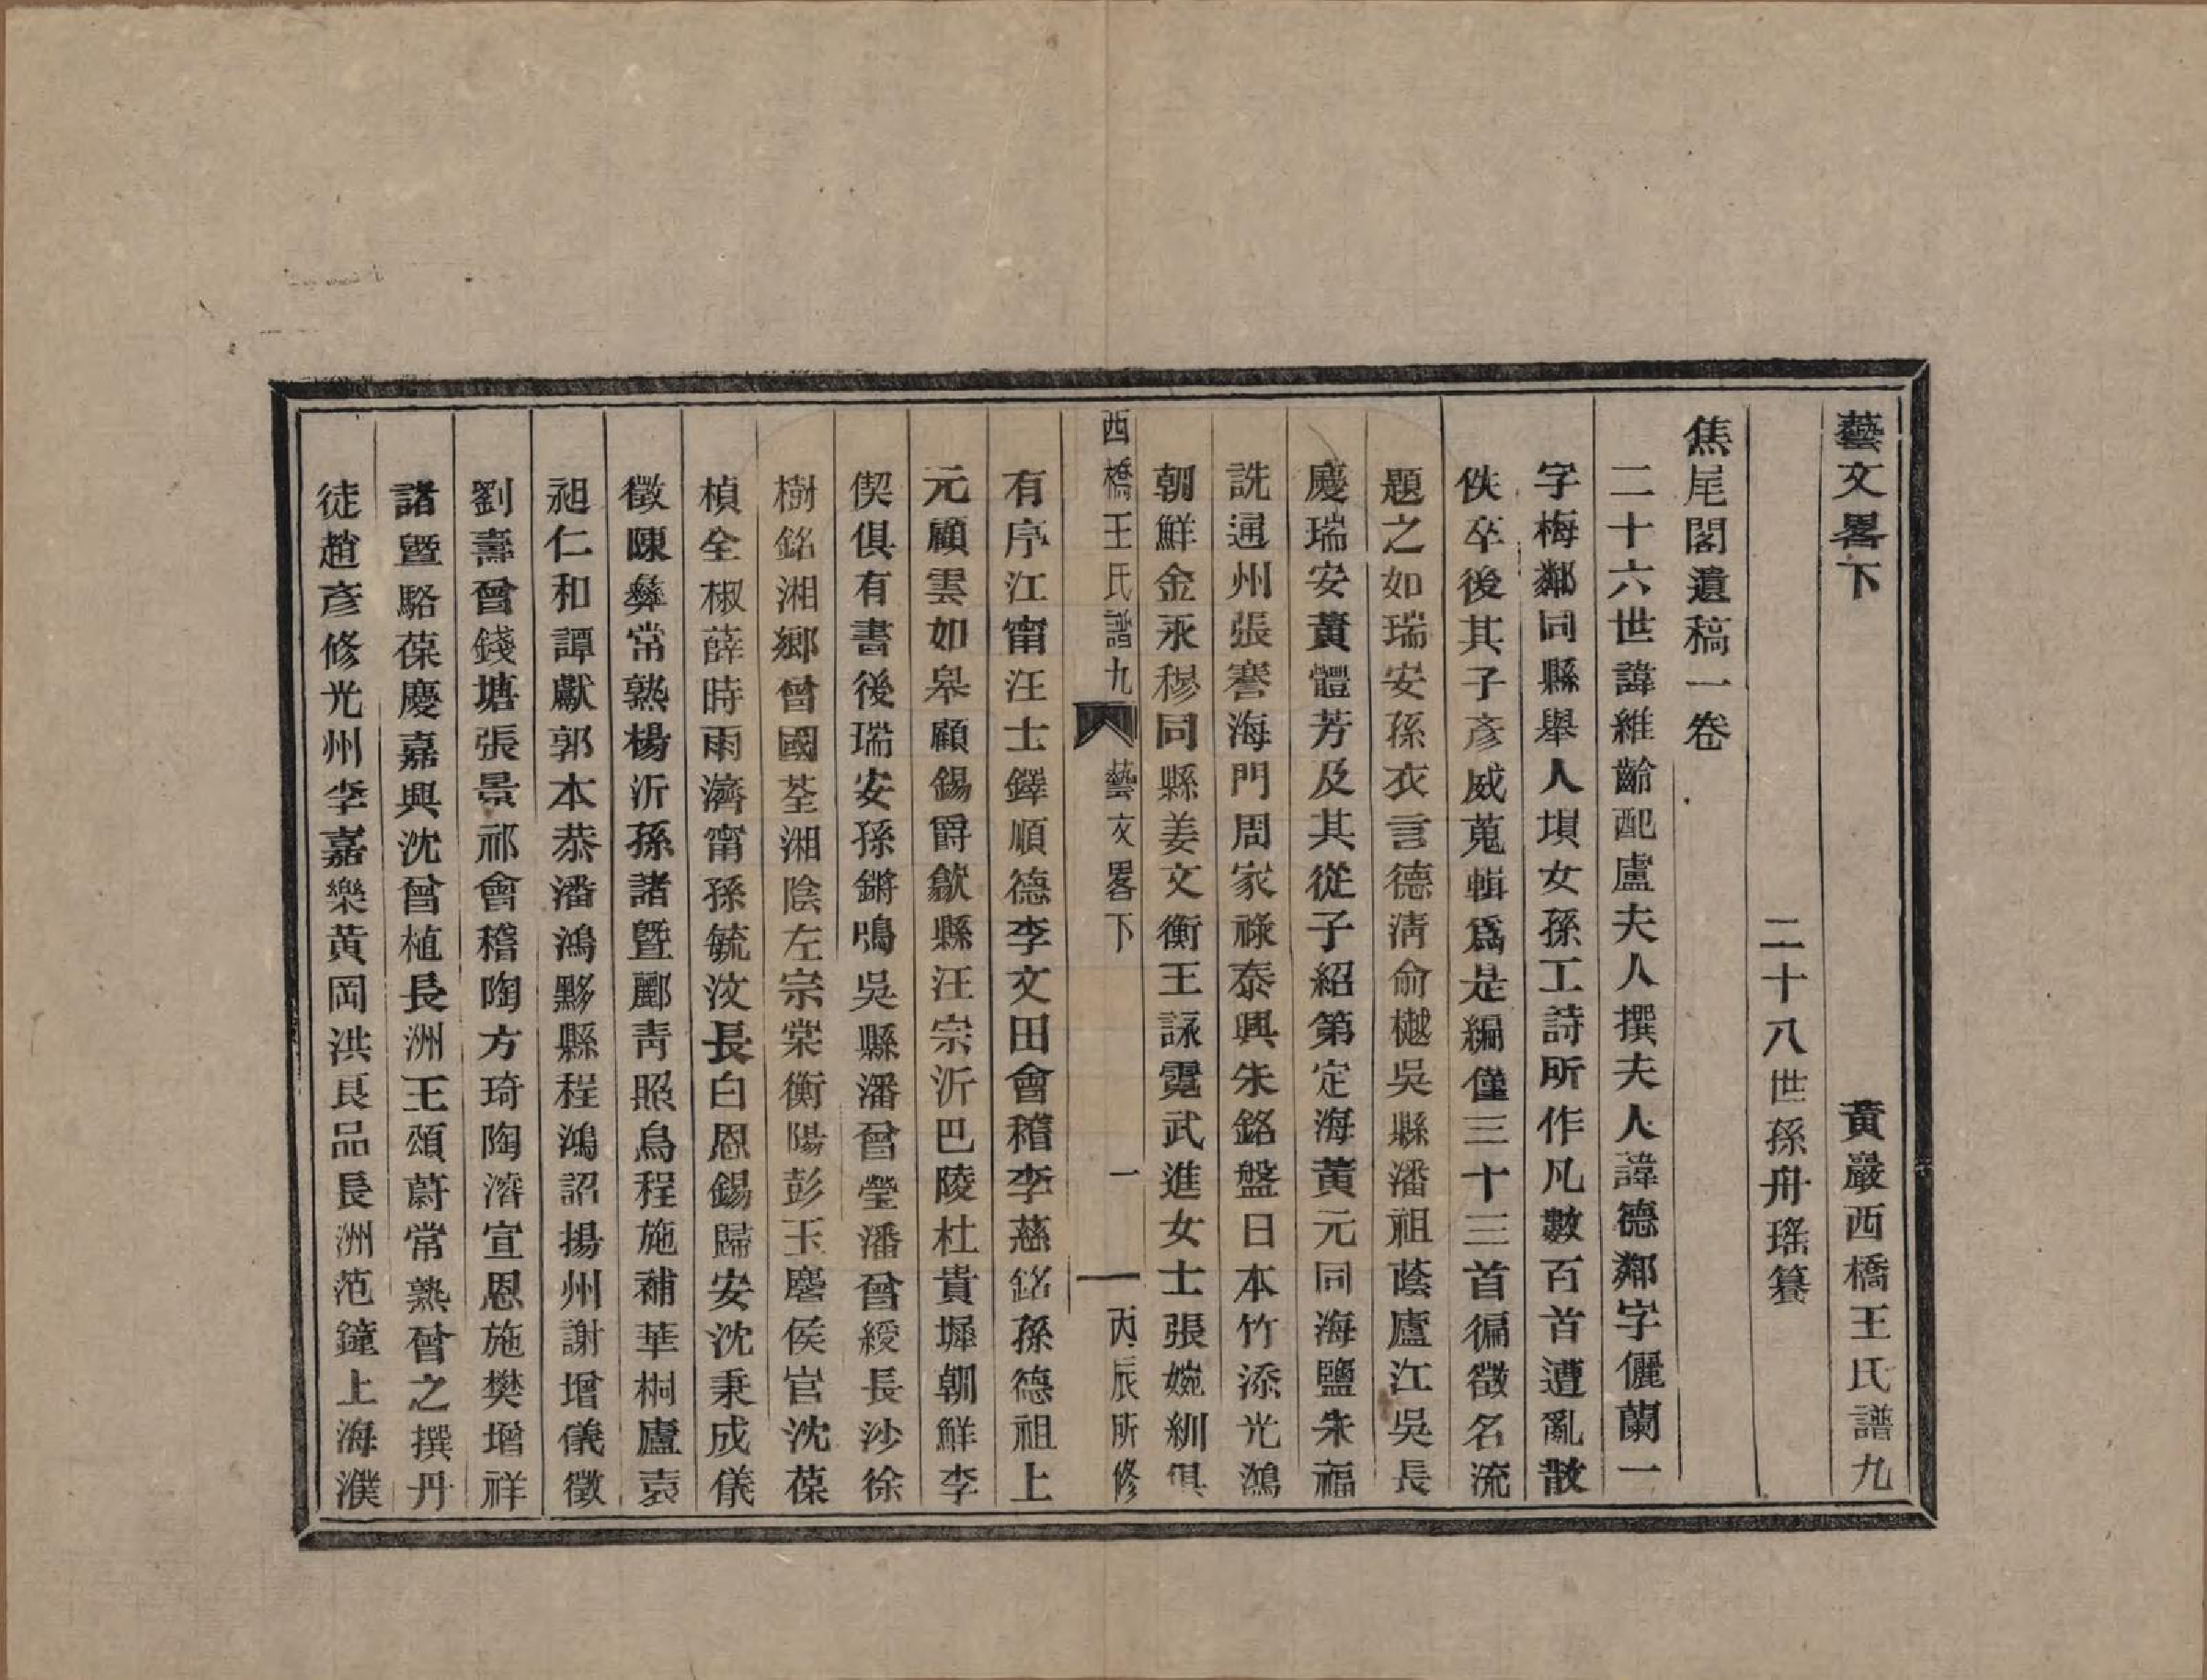 藝文畧下　黃巖西橋王氏譜九
二十八世孫舟瑤簒
焦尾閣遺稿一卷
二十六世諱維齡配盧夫人撰夫人諱德鄰字儷蘭一
字梅鄰同縣舉人垻女孫工詩所作凡數百首遭亂散
佚卒後其子彥威蒐輯爲是編僅三十三首徧徵名流
題之如瑞安孫衣言德淸俞樾吳縣潘祖蔭廬江吳長
慶瑞安黃體芳及其從子紹第定海黃元同海鹽朱福
詵通州張謇海門周家祿泰興朱銘盤日本竹添光鴻
朝鮮金永穆同縣姜文衡王詠霓武進女士張婉紃俱
西橋王氏譜九　藝文畧下　一　丙辰所修
有序江甯汪士鐸順德李文田會稽李慈銘孫德祖上
元顧雲如皋顧錫爵歙縣汪宗沂巴陵杜貴墀朝鮮李
偰俱有書後瑞安孫鏘鳴吳縣潘曾瑩潘曾綬長沙徐
樹銘湘鄉曾國荃湘陰左宗棠衡陽彭玉麐侯官沈葆
楨全椒薛時雨濟甯孫毓汶長白恩錫歸安沈秉成儀
徵陳彝常熟楊沂孫諸暨酈靑照烏程施補華桐廬袁
昶仁和譚獻郭本恭潘鴻黟縣程鴻詔揚州謝增儀徵
劉壽曾錢塘張景祁會稽陶方琦陶濬宣恩施樊增祥
諸曁駱葆慶嘉興沈曾植長洲王頌蔚常熟曾之撰丹
徒趙彥修光州李嘉樂黃岡洪良品長洲范鐘上海濮